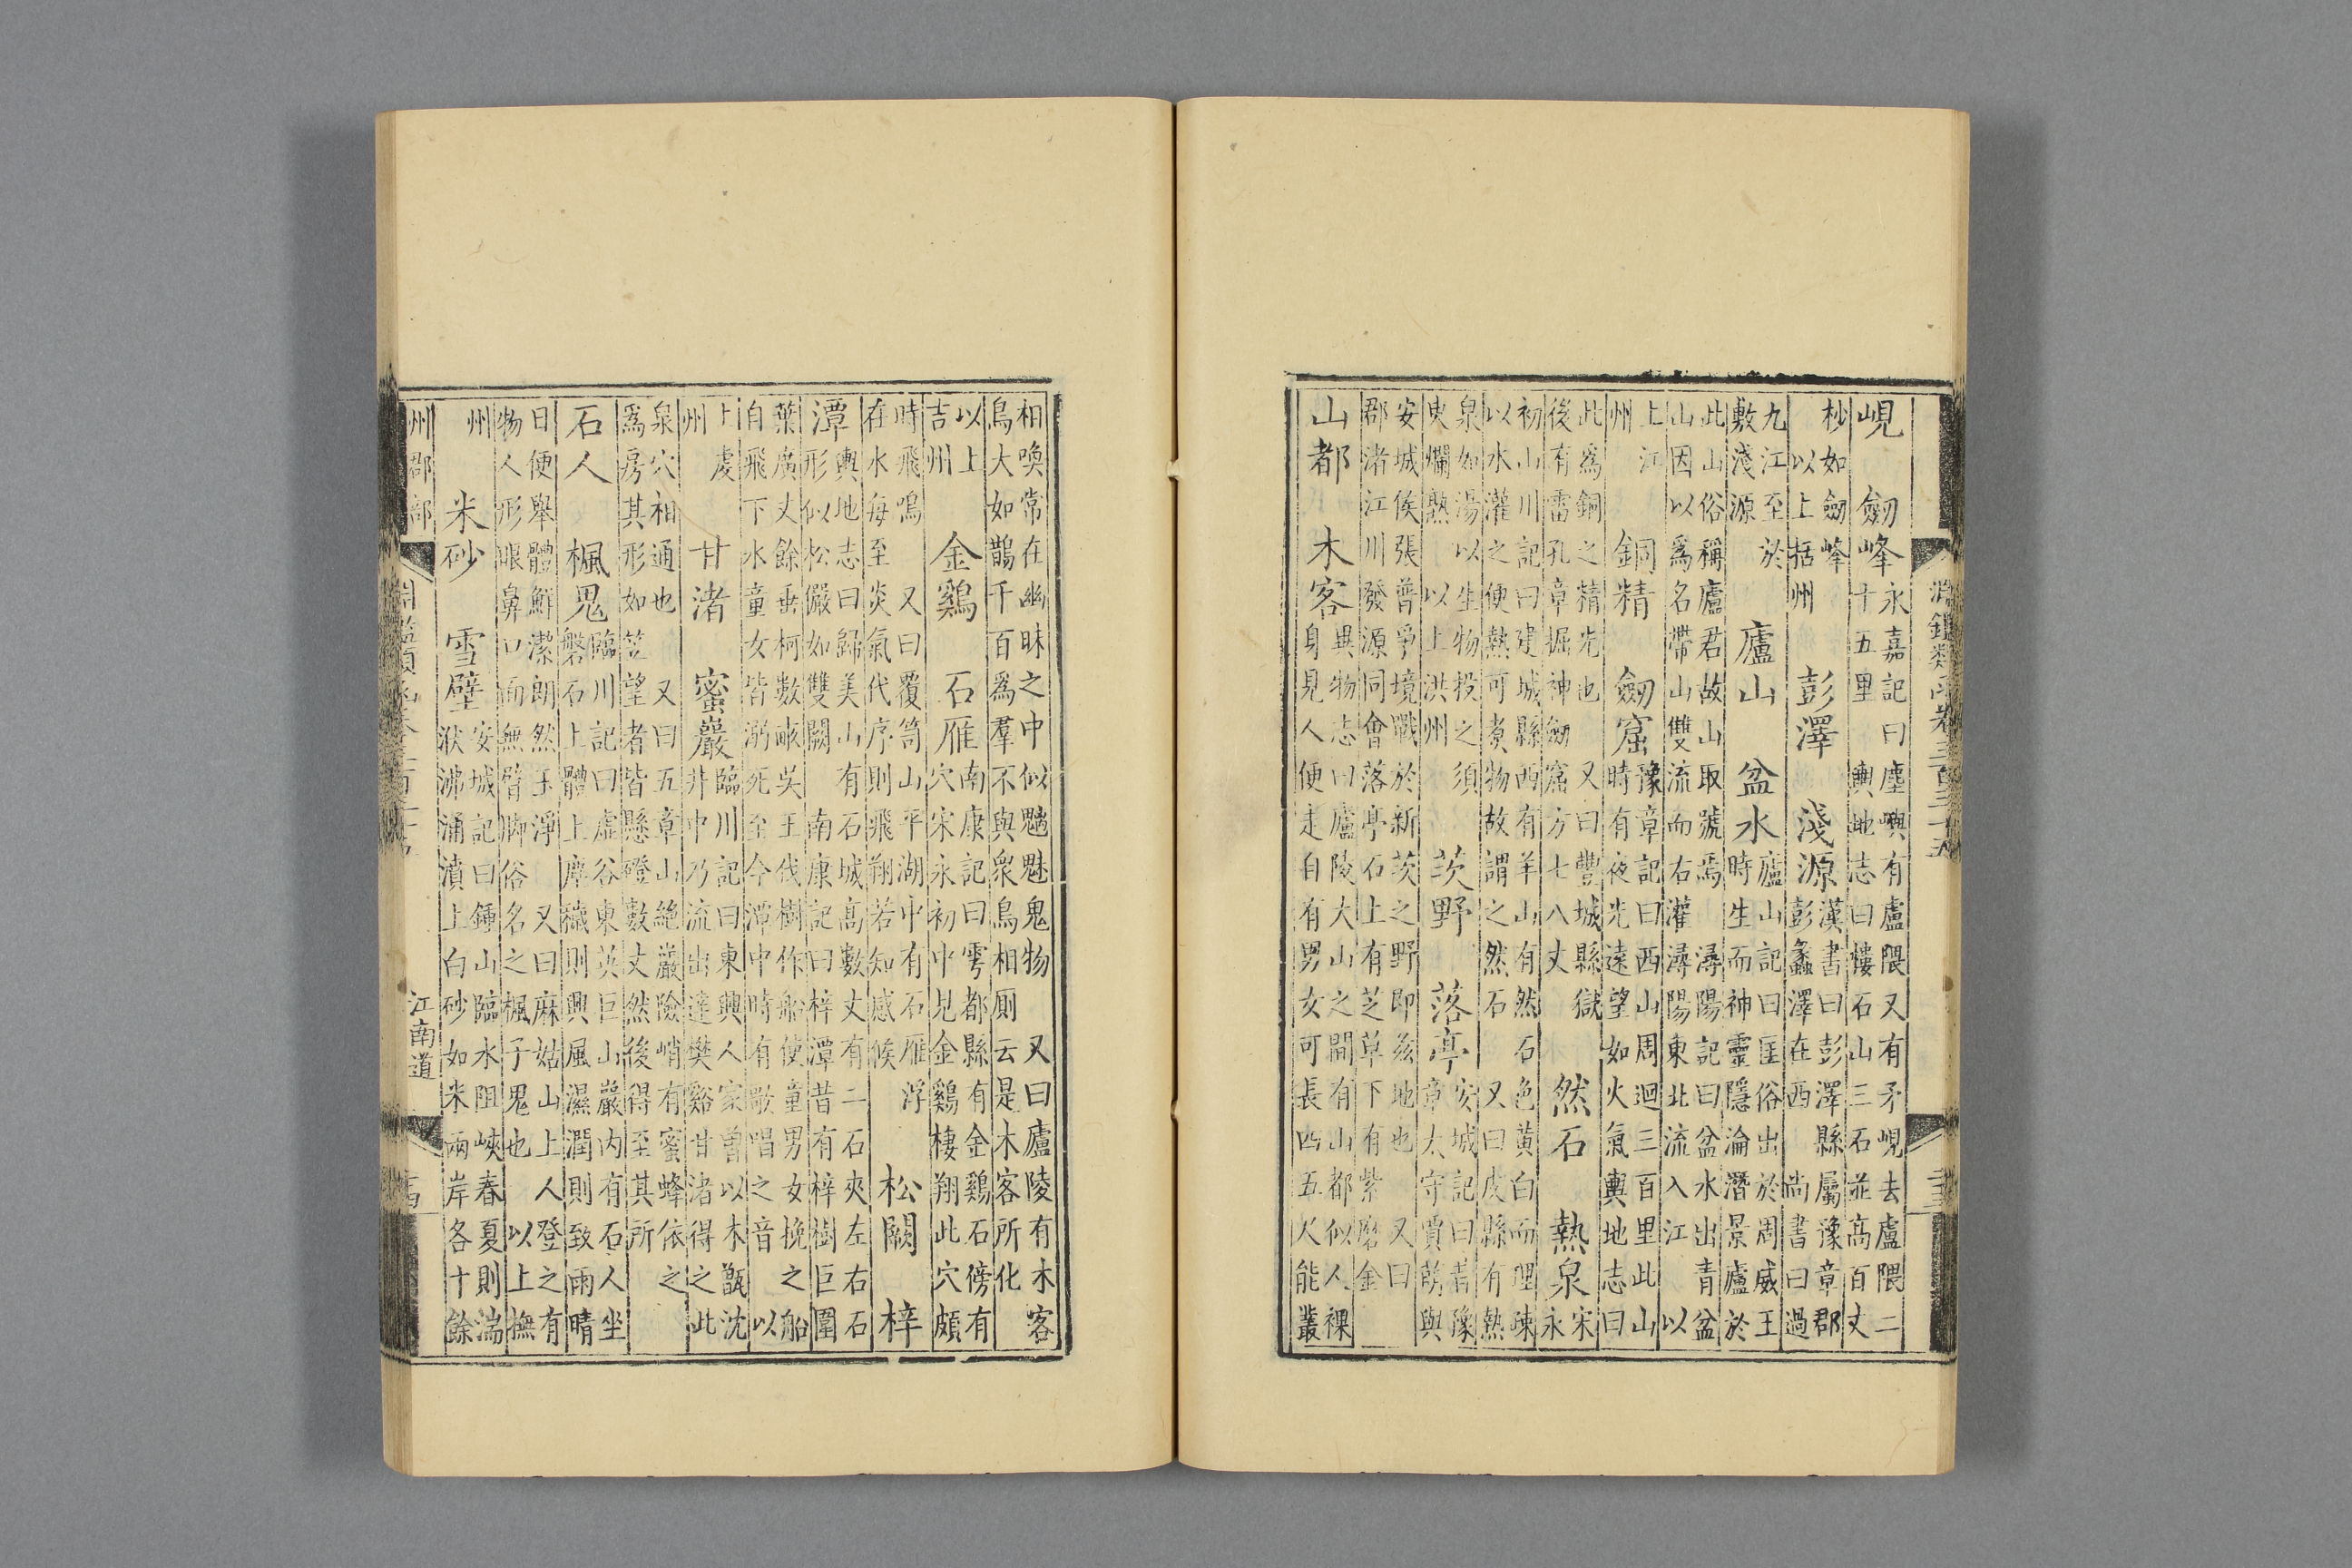 淵鑑類函卷三百三十五 二十三
峴 劒峰 永嘉記曰塵嶼有盧隈又有矛峴去盧隈二
十五里 輿地志曰樓石山三石並高百丈
杪如劒峰
以上括州 彭澤 淺源 漢書曰彭澤縣屬豫章郡
彭蠡澤在西 尚書曰過
九江至於
敷淺源 廬山 盆水 廬山記曰匡俗出於周威王
時生而神靈隱淪潛景廬於
此山俗稱廬君故山取號焉 潯陽記曰盆水出青盆
山因以爲名帶山雙流而右灌潯陽東北流入江 以
上江
州 銅精 劒窟 豫章記曰西山周迴三百里此山
時有夜光遠望如火氣輿地志曰
此爲銅之精光也 又曰豐城縣獄
後有雷孔章掘神劒窟方七八丈 然石 熱泉 宋
永
初山川記曰建城縣西有羊山有然石色黄白而理疎
以水灌之便熱可煑物故謂之然石 又曰皮縣有熱
泉如湯以生物投之須
臾爛熟 以上洪州 茨野 落亭 安城記曰昔豫
章太守賈萌與
安城侯張普爭境戰於新茨之野即茲地也 又曰
郡渚江川發源同會落亭石上有芝草下有紫磨金
山都 木客 異物志曰廬陵大山之間有山都似人裸
身見人便走自有男女可長四五尺能叢
相喚常在幽昧之中似魑魅鬼物 又曰廬陵有木客
鳥大如鵲千百爲羣不與衆鳥相厠云是木客所化
以上
吉州 金鷄 石雁 南康記曰雩都縣有金鷄石傍有
穴宋永初中見金鷄棲翔此穴頗
時飛鳴 又曰覆笥山平湖中有石雁浮
在水每至炎氣代序則飛翔若知感候 松闕 梓
潭 輿地志曰歸美山有石城高數丈有二石夾左右石
形似松儼如雙闕 南康記曰梓潭昔有梓樹巨圍
葉廣丈餘垂柯數畝吳王伐樹作船使童男女挽之船
自飛下水童女皆溺死至今潭中時有歌唱之音 以
上虔
州 甘渚 蜜巖 臨川記曰東興人家曾以木甑沈
井中乃流出達樊谿甘渚得之此
泉穴相通也 又曰五章山絶巖險峭有蜜蜂依之
爲房其形如笠望者皆懸磴數丈然後得至其所
石人 楓鬼 臨川記曰虛谷東英巨山巖内有石人坐
磐石上體上塵穢則興風濕潤則致雨晴
日便舉體鮮潔朗然玉淨 又曰麻姑山上人登之有
物人形眼鼻口面無臂脚俗名之楓子鬼也 以上撫
州 米砂 雪壁 安城記曰鍾山臨水阻峽春夏則湍
洑沸涌濆上白砂如米兩岸各十餘
州郡部 淵鑑類函卷三百三十五 江南道 二十四